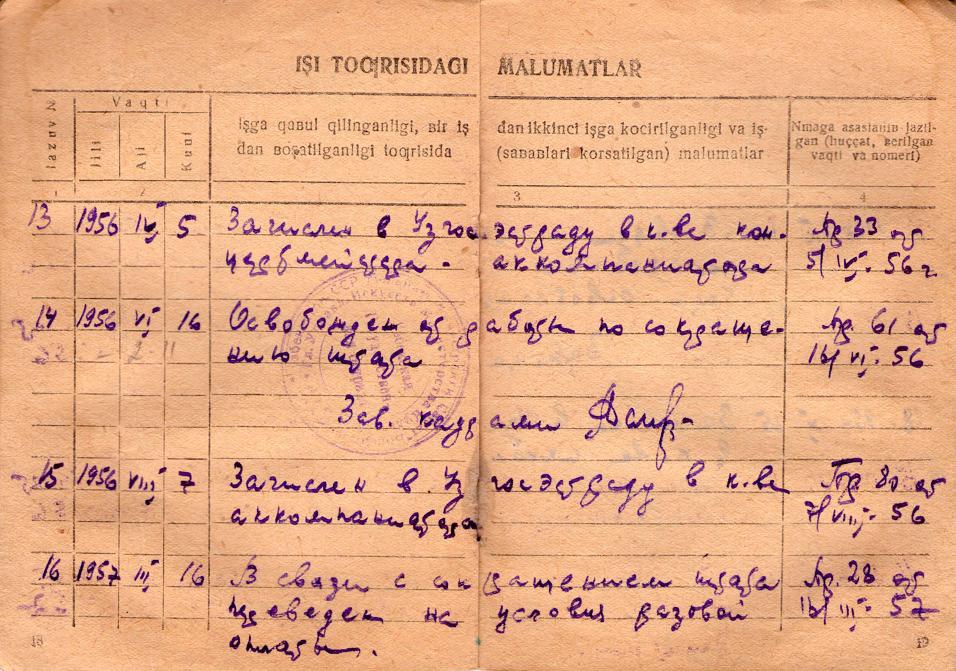 IŞI TOƢRISIDAGI MALUMATLAR
Jazuv №
Vaqti
Jili
Ali
Kuni
işga qaʙul qilinganligi, ʙir iş
dan ʙoşatilganligi toƣrisida
dan ikkinci işga kocirilganligi va iş-
(saʙaʙlari korsatilgan) malumatlar
Nmaga asaslaniʙ jazil-
gan (huççat, ʙerilgan
vaqti va nomeri)
3
4
13 1956 IV 5 Зачислен в Узгосэстраду в к-ве кон-
цертмейстера - аккомпаниатора
Пр 33 от
5/IV- 56 г.
14 1956 VI 16 Освобожден от работы по сокраще-
нию штата
Пр. 61 от
16/VI- 56
Зав. кадрами
15 1956 VIII 7 Зачислен в Узгосэстраду в к-ве
аккомпаниатора
Пр. 80 от
7/VIII- 56
16 1957 III 16 В связи с сокращением штата
переведен на условия разовой
оплаты.
Пр. 28 от
16/III- 57
18
19